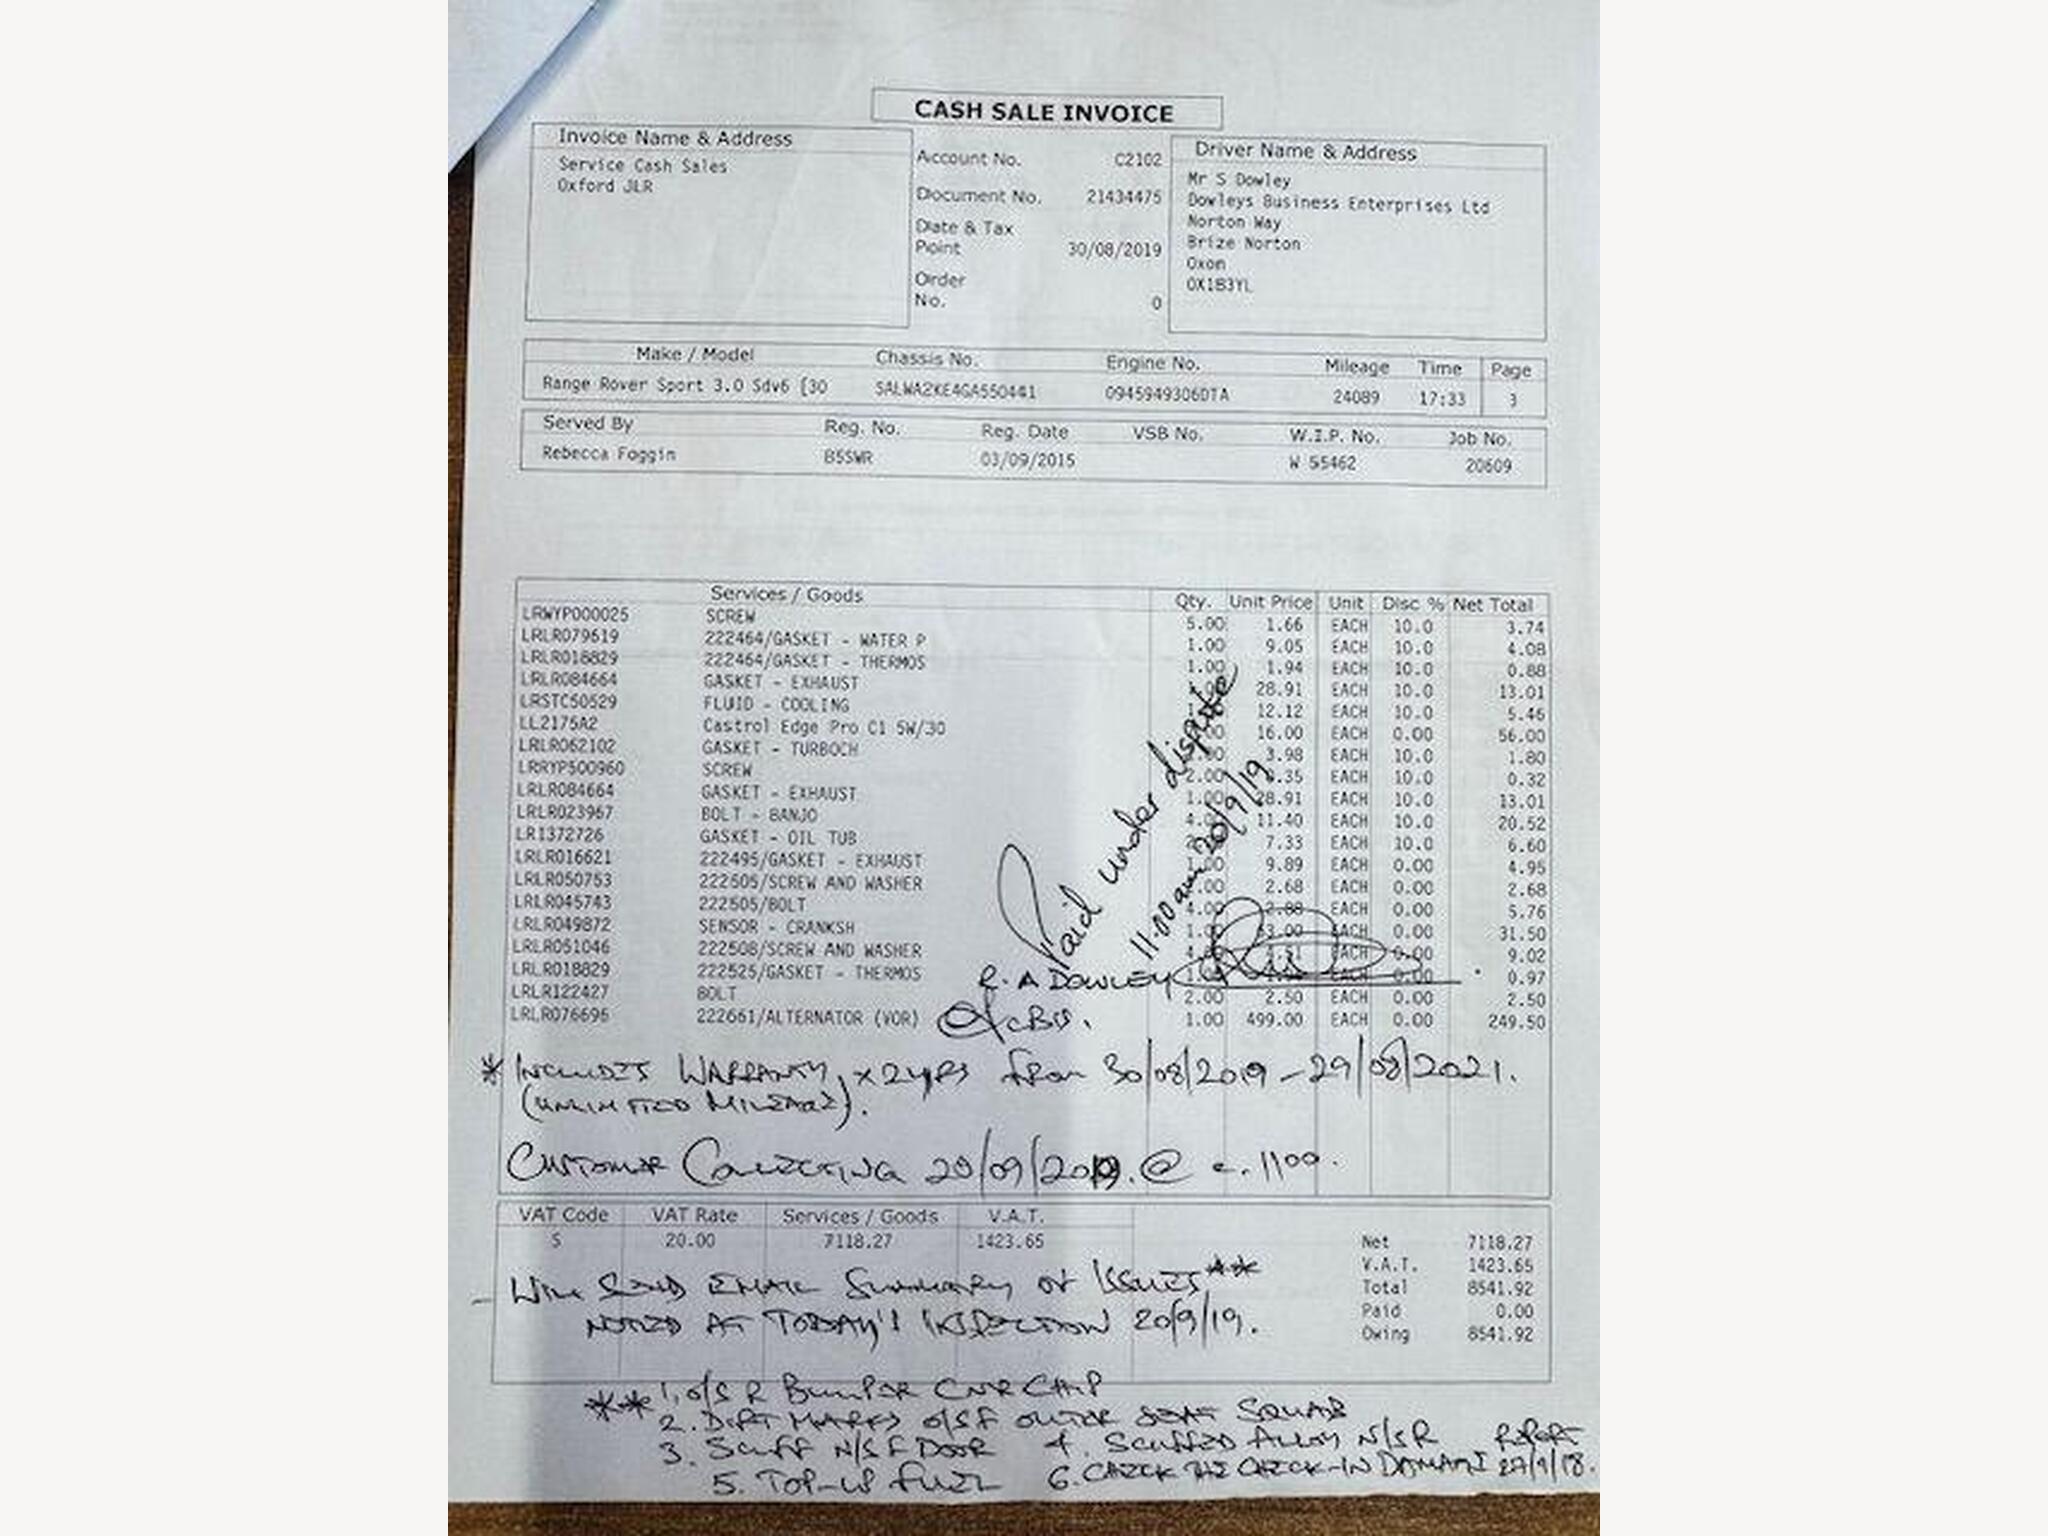 CASH SALE INVOICE
Invoice Name & Address
Service Cash Sales
Oxford JLR
Account No. C2102
Document No. 21434475
Date & Tax
Point 30/08/2019
Order
No. 0
Driver Name & Address
Mr S Dowley
Dowleys Business Enterprises Ltd
Norton Way
Brize Norton
Oxon
OX183YL
Make / Model Chassis No. Engine No. Mileage Time Page
Range Rover Sport 3.0 Sdv6 [30 SALWA2KE4GA550441 0945949306DTA 24089 17:33 3
Served By Reg. No. Reg. Date VSB No. W.I.P. No. Job No.
Rebecca Foggin B5SWR 03/09/2015 W 55462 20609
Services / Goods Qty. Unit Price Unit Disc % Net Total
LRWYP000025 SCREW 5.00 1.66 EACH 10.0 3.74
LRLR079619 222464/GASKET - WATER P 1.00 9.05 EACH 10.0 4.08
LRLR018829 222464/GASKET - THERMOS 1.00 1.94 EACH 10.0 0.88
LRLR084664 GASKET - EXHAUST 28.91 EACH 10.0 13.01
LRSTC50529 FLUID - COOLING 12.12 EACH 10.0 5.46
LL2175A2 Castrol Edge Pro C1 5W/30 16.00 EACH 0.00 56.00
LRLR062102 GASKET - TURBOCH 3.98 EACH 10.0 1.80
LRRYP500960 SCREW 2.00 EACH 10.0 0.32
LRLR084664 GASKET - EXHAUST 1.00 28.91 EACH 10.0 13.01
LRLR023967 BOLT - BANJO 4.00 11.40 EACH 10.0 20.52
LR1372726 GASKET - OIL TUB 7.33 EACH 10.0 6.60
LRLR016621 222495/GASKET - EXHAUST 1.00 9.89 EACH 0.00 4.95
LRLR050753 222505/SCREW AND WASHER 2.68 EACH 0.00 2.68
LRLR045743 222505/BOLT 4.00 2.88 EACH 0.00 5.76
LRLR049872 SENSOR - CRANKSH 1.00 63.00 EACH 0.00 31.50
LRLR051046 222508/SCREW AND WASHER EACH 0.00 9.02
LRLR018829 222525/GASKET - THERMOS EACH 0.00 0.97
LRLR122427 BOLT 2.00 2.50 EACH 0.00 2.50
LRLR076696 222661/ALTERNATOR (VOR) 1.00 499.00 EACH 0.00 249.50
Paid under dispute
11:00am 20/9/19
R. A DOWLEY
* INCLUDES WARRANTY x 2YRS from 30/08/2019 - 29/08/2021.
(UNLIMITED MILEAGE).
CUSTOMER COLLECTING 20/09/2019. @ c. 1100.
VAT Code VAT Rate Services / Goods V.A.T.
S 20.00 7118.27 1423.65
Net 7118.27
V.A.T. 1423.65
Total 8541.92
Paid 0.00
Owing 8541.92
- WILL SEND EMAIL SUMMARY OF ISSUES **
NOTED AT TODAY'S INSPECTION 20/9/19.
** 1. O/S R BUMPER CNR CHIP
2. DIRT MARKS O/S F OUTER SEAT SQUAB
3. SCUFF N/S F DOOR 4. SCUFFED ALLOY N/S R
5. TOP-UP FUEL 6. CHECK THE CHECK-IN DAMAGE REPORT